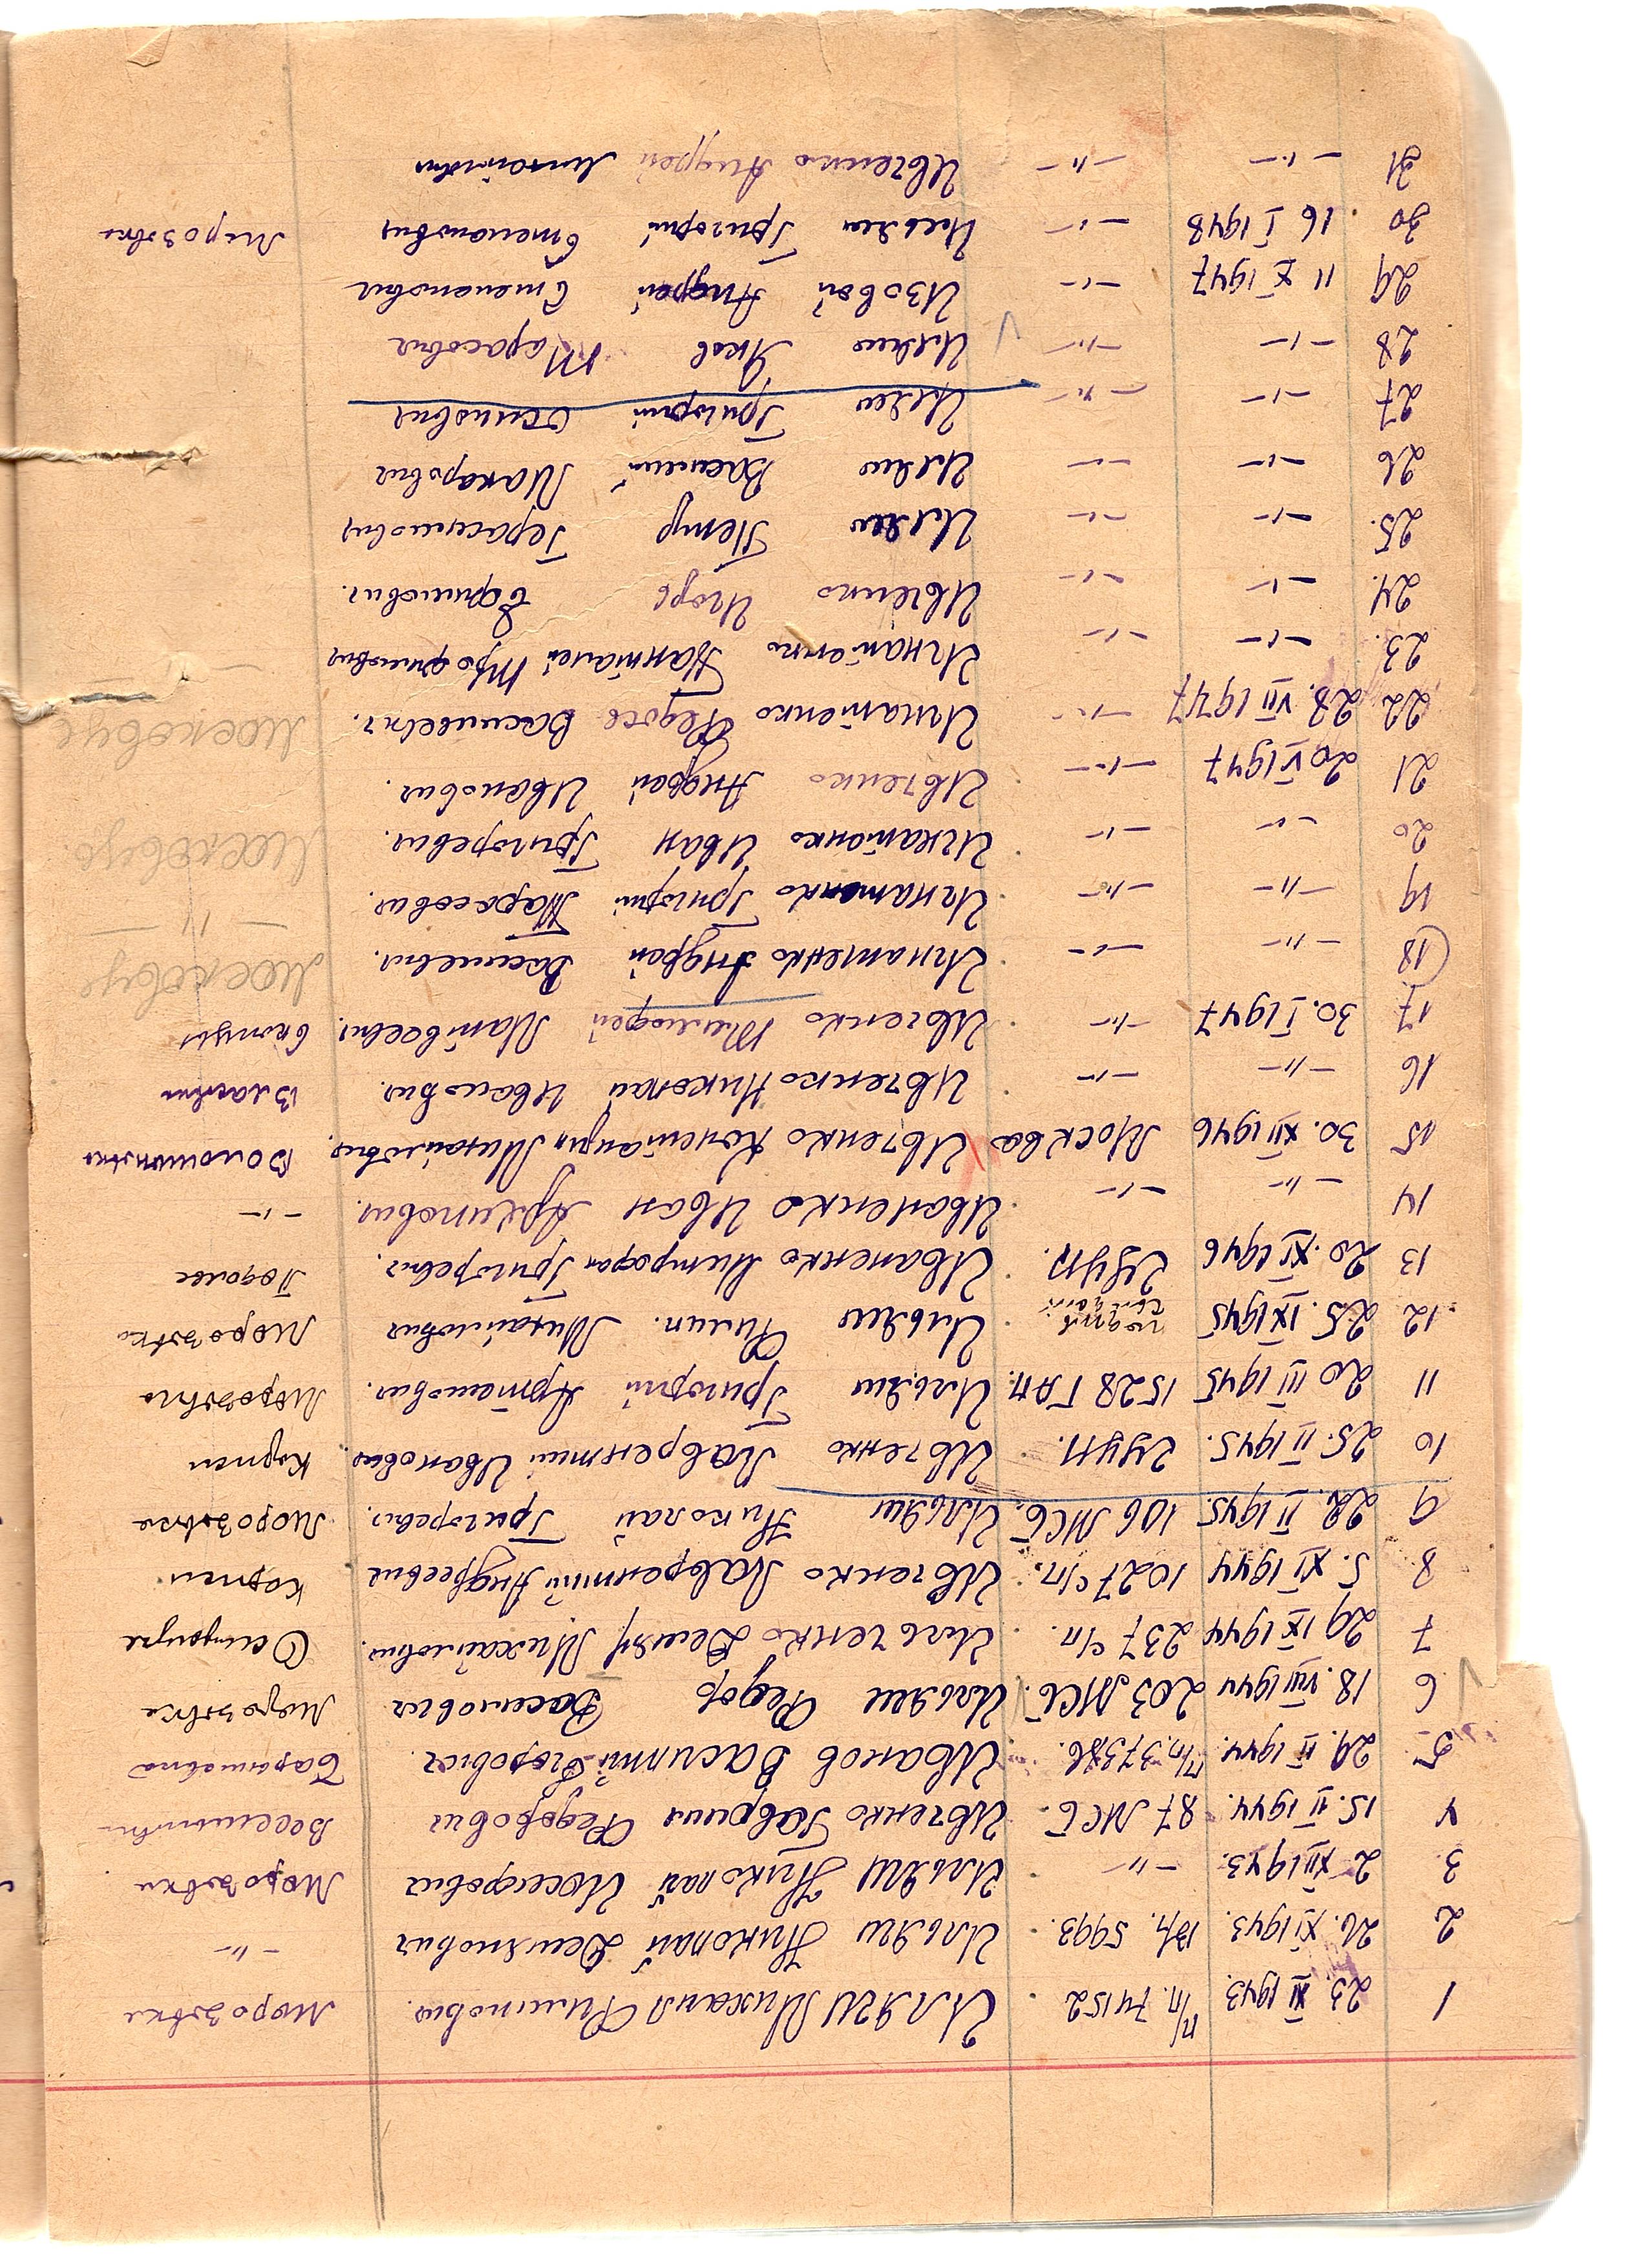 1 23. XI 1943. п/п. 74152 Илляш Михаил Филипович. Морозовка
2 26. XI 1943. В/ч. 5993. Ильяш Николай Демьянович -"-
3 2 XII 1943. -"- Ильяш Николай Иосифович Морозовка
4 15. II 1944. 87 МСБ. Ивченко Гаврил Федорович
5 29. II 1944. п/п. 37386. Иванов Василий Егорович.
6 18. VIII 1944 203 МСБ. Ильяш Федор Васильевич Морозовка
7 29 IX 1944 237 с/п. Ильченко Демян Михайлович.
8. 5. XI 1944 1027 с/п. Ивченко Лаврентий Андреевич Корпач
9 22. II 1945. 106 МСБ. Ильяш Николай Григоревич. Морозовка
10 25. II 1945. 2УУП. Ивченко Лаврентий Иванович. Корпач
11 20 III 1945 1528 ГАП. Ильяш Григорий Морозовка
12 25. IX 1945 Ильяш Филип. Михайлович Морозовка
13 20. XI 1946 2УУП. Иваненко Митрофан Григоревич.
14 -"- -"- Иваненко Иван Архипович. -"-
15 30. XII 1946 Москва Ивченко Михайлович.
16 -"- -"- Ивченко Николай Иванович.
17 30. I 1947 -"- Ивченко Тимофей Матвеевич.
18 -"- -"- Игнатенко Андрей Васильевич.
19 -"- -"- Игнатенко Григорий Тарасович. -"-
20 -"- -"- Игнатенко Иван Григоревич.
21 20 V 1947 -"- Ивченко Андрей Иванович.
22 28. VII 1947 -"- Игнатенко Федос Васильевич.
23. -"- -"- Игнатенко Пантелей Трофимович
24. -"- -"- Ивченко Игорь Ефимович.
25. -"- -"- Илляш Петр Герасимович
26 -"- -"- Илляш Василий Макарович
27 -"- -"- Илляш Григорий Осипович
28 -"- -"- Илляш Яков Тарасович
29 11 X 1947 -"- Изовой Андрей Степанович
30 16 I 1948 -"- Ильяш Григорий Степанович Морозовка
31 -"- -"- Ивченко Андрей Михайлович